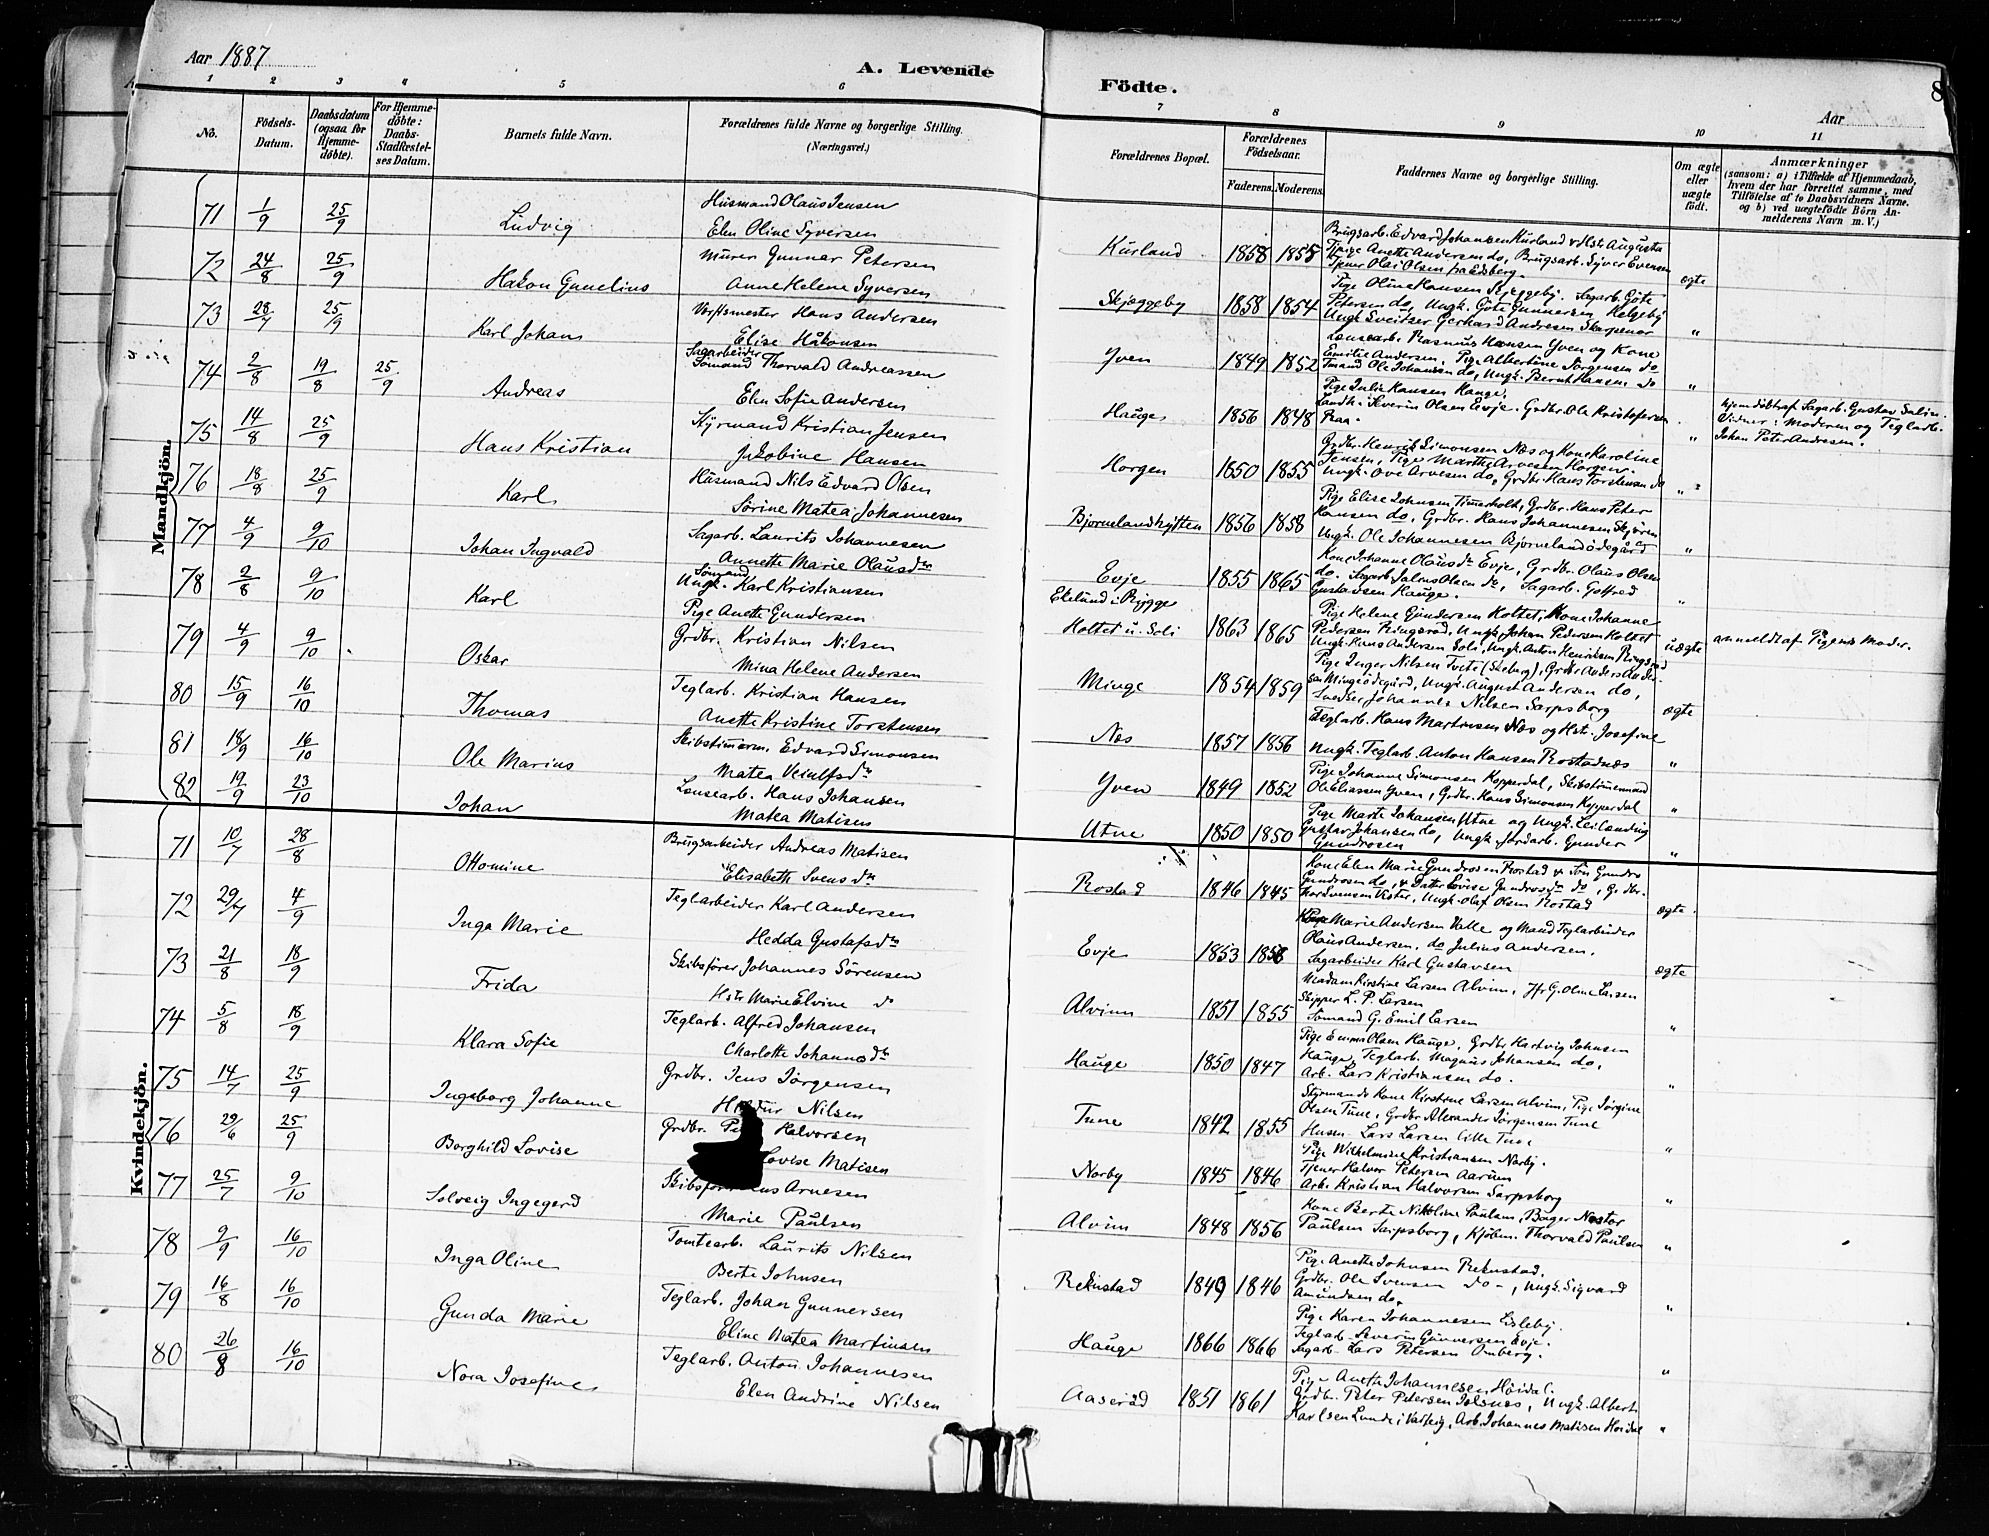 Aar 1887
A. Levende
Födte.
8
Aar
1 2 3 4 5 6 7 8 9 10 11
No.
Födsels-Datum.
Daabsdatum (ogsaa for Hjemmedöbte).
For Hjemmedöbte: Daabs-Stadfæstelses Datum.
Barnets fulde Navn.
Forældrenes fulde Navne og borgerlige Stilling. (Næringsvei.)
Forældrenes Bopæl.
Forældrenes Födselsaar.
Faderens. Moderens.
Faddernes Navne og borgerlige Stilling.
Om ægte eller uægte födt.
Anmærkninger (sansom: a) i Tilfælde af Hjemmedaab, hvem der har forrettet samme, med Tilföielse af to Daabsvidners Navne. og b) ved uægtefödte Börn Anmelderens Navn m. V.)
Mandkjön.
71 1/9 25/9 Ludvig
Husmand Olaus Jensen
Elen Oline Syversen
Kurland 1858 1855
Brugsarb. Edvard Johansen Kurland & Hstr Augusta
Pige Anette Andersen do, Brugsarb. Syver Evensen
Tjener Olai Olsen fra Edsberg.
ægte
72 24/8 25/9 Hakon Gunelius
Murer Gunnar Petersen
Anne Helene Syversen
Skjæggeby 1858 1854
Pige Oline Hansen Skjeggeby. Sagarb. Göte
Petersen do, Ungk. Göte Gunnersen Helgeby
Ungk. Sveitser Gerhard Andresen Skarpenor
"
73 28/7 25/9 Karl Johans
Verftsmester Hans Andersen
Elise Håkonsen
Yven 1849 1852
Lænsearb. Rasmus Hansen Yven og Kone
Emilie Andersen, Pige Albertine Jörgensen do
Tmand Ole Johansen do, Ungk. Bernt Hansen do
"
74 2/8 19/8 25/9 Andreas
Sagarbeider
Sömand Thorvald Andreassen
Elen Sofie Andersen
Hauge 1856 1848
Pige Julie Hansen Hauge.
Landh. Severin Olsen Evje. Grdbr. Ole Kristofersen
Raa.
"
hjemdöbt af Sagarb. Gustav Salin.
Vidner: Moderen og Teglarb.
Johan Peter Andresen.
75 14/8 25/9 Hans Kristian
Styrmand Kristian Jensen
Jakobine Hansen
Horgen 1850 1855
Grdbr. Henrik Simonsen Næs og Kone Karoline
Jensen, Pige Marthe Arvesen Horgen.
Ungk. Ove Arvesen do, Grdbr. Hans Torstensen do
"
76 18/8 25/9 Karl
Husmand Nils Edvard Olsen
Sörine Matea Johannesen
Bjørnelandhytten 1856 1858
Pige Elise Johnsen Timerholt, Grdbr. Hans Peter
Hansen do, Grdbr. Hans Johannesen Skjören
Ungk. Ole Johannesen Bjørnelandödegård
"
77 4/9 9/10 Johan Ingvald
Sagarb. Laurits Johannesen
Annette Marie Olausdtr
Evje 1855 1865
Kone Johanne Olausdtr Evje, Grdbr. Olaus Olsen
do. Sagarb. Julius Olsen do, Sagarb. Gotfred
Gustavsen Hauge.
"
78 2/8 9/10 Karl
Sömand
Ungk. Karl Kristiansen
Pige Anette Gundersen
Ekelund i Rygge
Holtet u. Soli 1863 1865
Pige Helene Gundersen Holtet, Kone Johanne
Pedersen Ringsrød, Ungk. Johan Pedersen Holtet
Ungk. Hans Andersen Soli, Ungk. Anton Henriksen Ringsrød
uægte
anmeldt af Pigens Moder.
79 4/9 9/10 Oskar
Grdbr. Kristian Nilsen
Mina Helene Andersen
Minge 1854 1859
Pige Inger Nilsen Tvete (Skeberg), Grdbr Anders Ander-
sen Mingeödegård, Ungk. August Andersen do,
Svedker Johannes Nilsen Sarpsborg
ægte
80 15/9 16/10 Thomas
Teglarb. Kristian Hansen
Anette Kristine Torstensen
Næs 1857 1856
Teglarb. Hans Martinsen Næs og Hstr. Josefine
Ungk. Teglarb. Anton Hansen Rostadnæs
"
81 18/9 16/10 Ole Marius
Skibstimerm. Edvard Simonsen
Matea Veiulfsdtr
Yven 1849 1852
Pige Johanne Simonsen Kopperdal, Skibstömermand
Ole Eliassen Yven, Grdbr. Hans Simonsen Kopperdal
"
82 19/9 23/10 Johan
Lænsearb. Hans Johansen
Matea Matisen
Utne 1850 1850
Pige Marte Johansen Utne og Ungk. Leilænding
Gustav Johansen do, Ungk. Jordarb. Gunder
Gundrosen
"
Kvindekjön.
71 10/7 28/8 Ottomine
Brugsarbeider Andreas Matisen
Elisabeth Svensdtr
Rostad 1846 1845
Kone Elen Marie Gundrosen Rostad & Sön Gundro
Gundrosen do, & Datter Lovise Gundrosdtr do, Grdbr.
Thor Svensen Vister, Ungk. Olaf Olsen Rostad
ægte.
72 29/7 4/9 Inga Marie
Teglarbeider Karl Andersen
Hedda Gustafsdtr
Evje 1853 1858
Kone Marie Andersen Valle og Mand Teglarbeider
Olaus Andersen, do Julius Andersen.
Sagarbeider Karl Gustavsen
ægte
73 21/8 18/9 Frida
Skibsförer Johannes Sörensen
Hstr Marie Elvine do
Alvim 1851 1855
Madam Kirstine Larsen Alvim, Jfr G. Oline Larsen
Skipper L. P. Larsen
Sömand G. Emil Larsen
"
74 5/8 18/9 Klara Sofie
Teglarb. Alfred Johansen
Charlotte Johannesdtr
Hauge 1850 1847
Pige Emma Olsen Hauge, Grdbr Hartvig Johnsen
Hauge, Teglarb. Magnus Johansen do,
Arb. Lars Kristiansen do.
"
75 14/7 25/9 Ingeborg Johanne
Grdbr. Jens Jörgensen
Nilsen
Tune 1842 1855
Styrmands Kone Kirstine Larsen Alvim, Pige Jörgine
Olsen Tune, Grdbr Alexander Jörgensen Tune
Husm. Lars Larsen Lille Tune
"
76 29/6 25/9 Borghild Lovise
Grdbr. Halvorsen
Lovise Matisen
Norby 1845 1846
Pige Wilhelmine Kristiansen Norby.
Tjener Halvor Petersen Aarum
Arb. Kristian Halvorsen Sarpsborg
"
77 25/7 9/10 Solveig Ingegerd
Arnesen
Marie Paulsen
Alvim 1848 1856
Kone Berte Nikoline Paulsen, Bager Nestor
Paulsen Sarpsborg, Kjöbm. Thorvald Paulsen
"
78 9/9 16/10 Inga Oline
Tomtearb. Laurits Nilsen
Berte Johnsen
Reknstad 1849 1846
Pige Anette Johnsen Reknstad.
Grdbr. Ole Svensen do, Ungk. Sigvard
Amundsen do.
"
79 16/8 16/10 Gunda Marie
Teglarb. Johan Gunnersen
Eline Matea Martinsen
Hauge 1866 1866
Pige Karen Johannesen Edsleby.
Teglarb. Severin Gunnersen Evje.
Sagarb. Lars Petersen Omberg.
"
80 26/8 16/10 Nora Josefine
Teglarb. Anton Johannesen
Elen Andrine Nilsen
Aaseröd 1851 1861
Pige Anette Johannesen Höidal.
Grdbr. Peter Petersen Jelsnes, Ungk. Albert
Karlsen Lunde i Varteig, Arb. Johannes Matisen Höidal
"